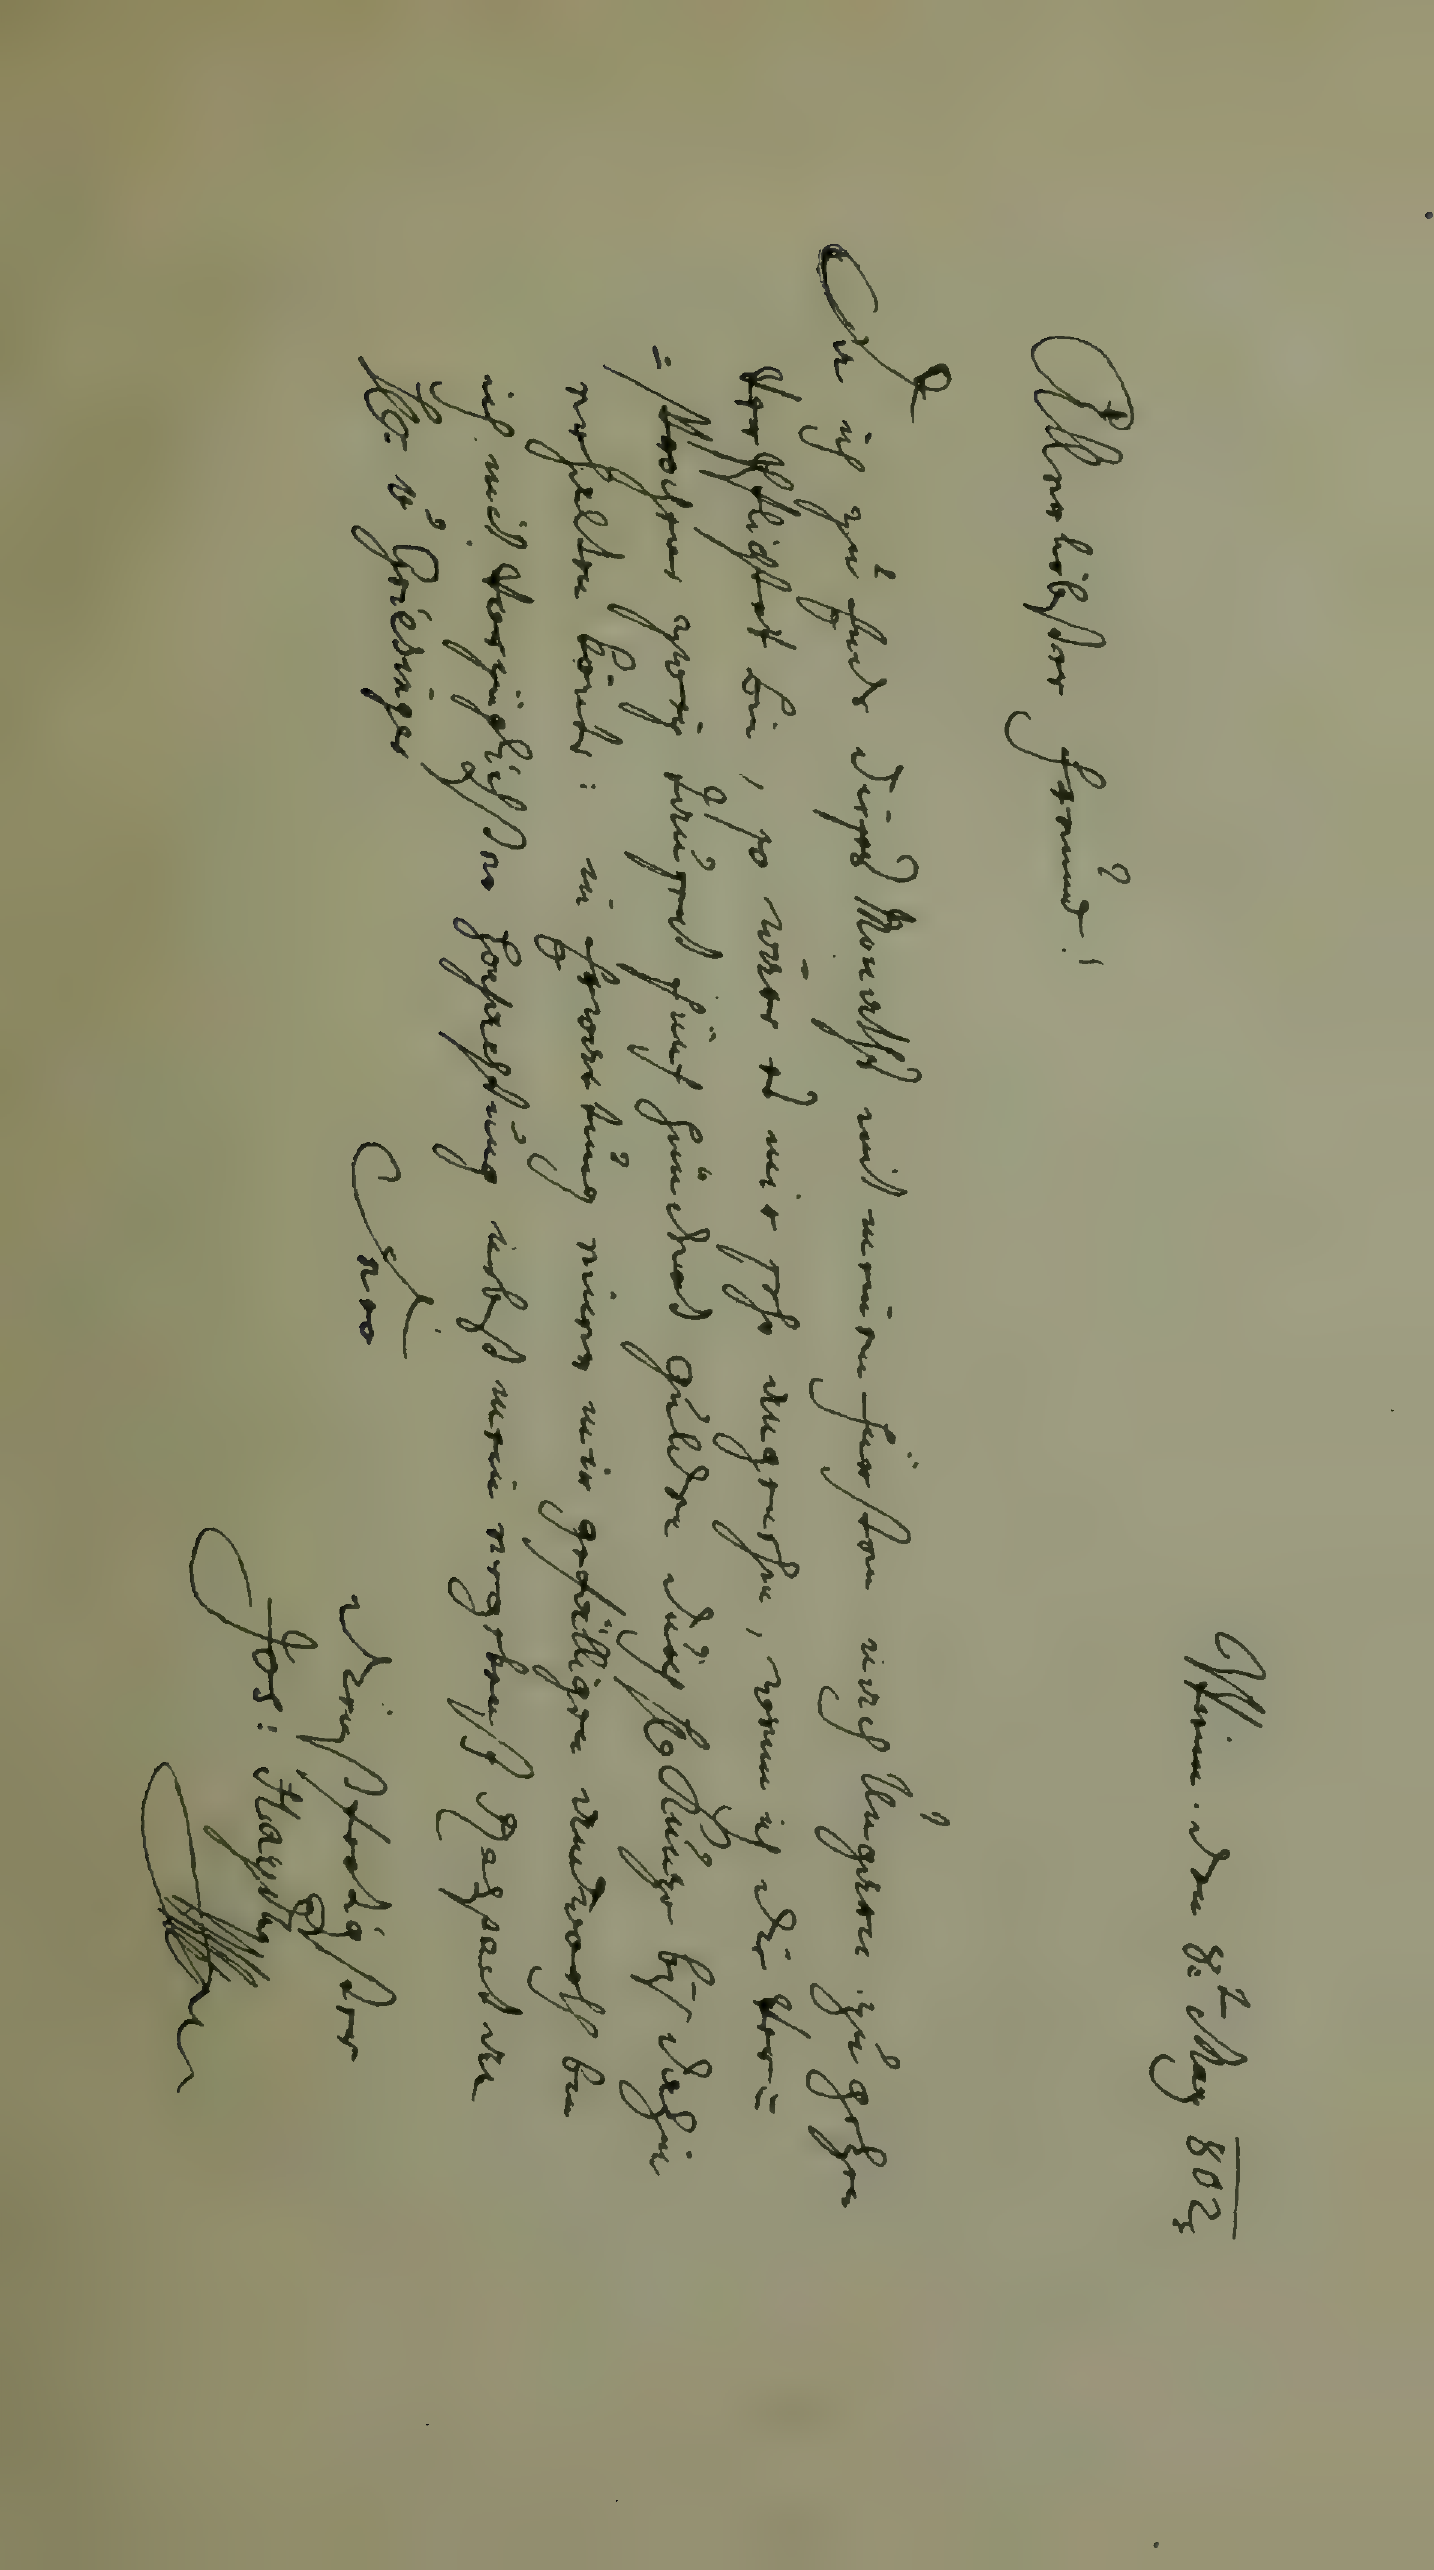 Wienn. den 8t May 802
Allerliebster Freund!
Da ich zu Ende dieses Monaths mit meinem Fürsten nach Ungarn zu gehen
verpflichtet bin, so wäre es mir sehr angenehm, wenn ich die ver=
=sprochene zwey tausent fünf hundert gulden durch H Kunze bis dahin
erhalten könte: in Erwartung einer mir gefälligen andworth bin
ich mit vorzüglichster Hochachtung nebst mein ergebenst Respect an
H. v Griesinger
Dero
dienstfertigster
Jos: Haydn